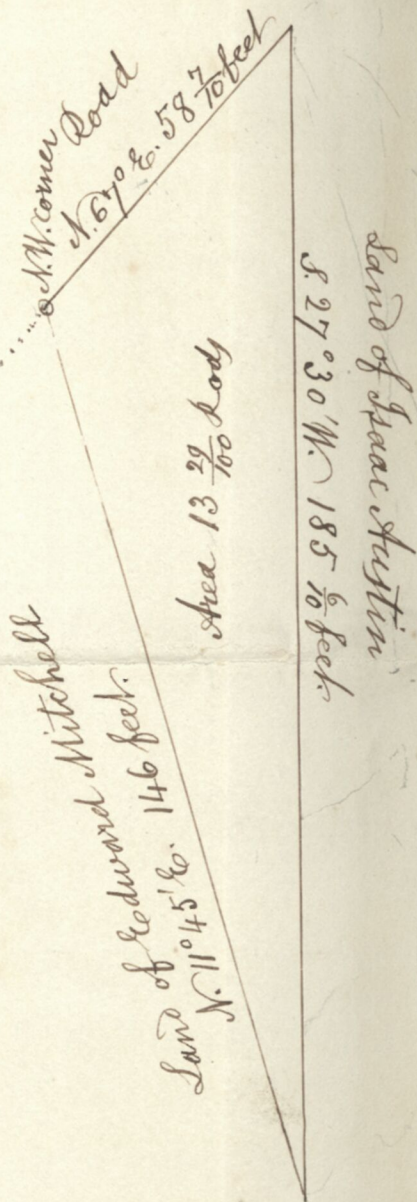 N.W. corner
Road
N. 67° E. 58 7/10 feet
Land of Isaac Austin
S. 27° 30' W. 185 6/10 feet.
Area 13 29/100 Rods
Land of Edward Mitchell
N. 11° 45' E. 146 feet.